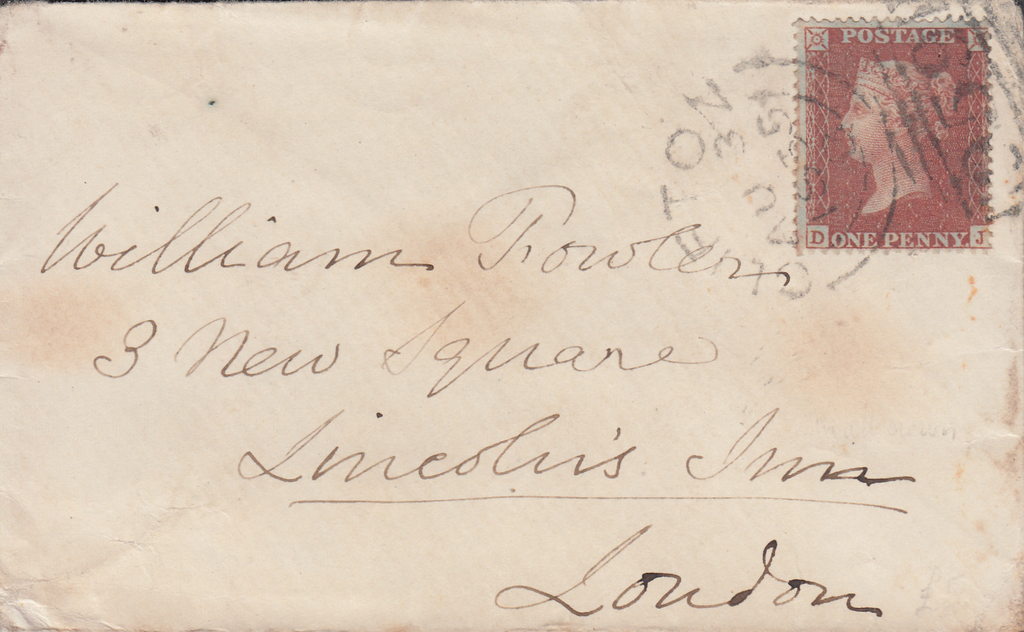 POSTAGE
D ONE PENNY J
William Fowler
3 New Square
Lincoln's Inn
London